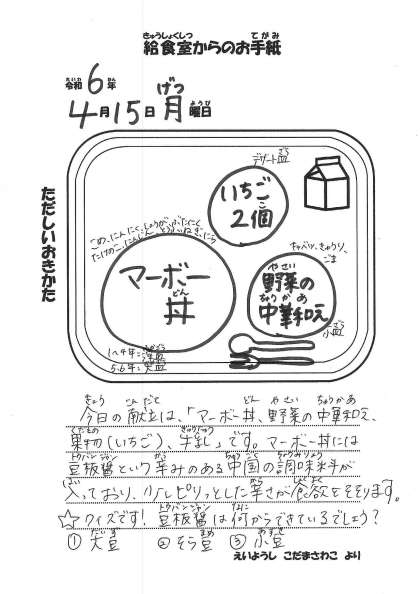 給食室からのお手紙
令和6年
4月15日月曜日
ただしいおきかた
デザート皿
いちご
2個
こめ、にんにく、しょうが、ぶたにく
たけのこ、にんじん、とうふ、ねぎ、にら
マーボー
丼
キャベツ、きゅうり、
ごま
野菜の
中華和え
小皿
1〜4年:
5.6年:
今日の献立は、「マーボー丼、野菜の中華和え、
果物(いちご)、牛乳」です。マーボー丼には
豆板醤という辛みのある中国の調味料が
入っており、少しピリッとした辛さが食欲をそそります。
☆クイズです!豆板醤は何からできているでしょう?
①大豆 ②そら豆 ③小豆
えいようし こだまさわこ より